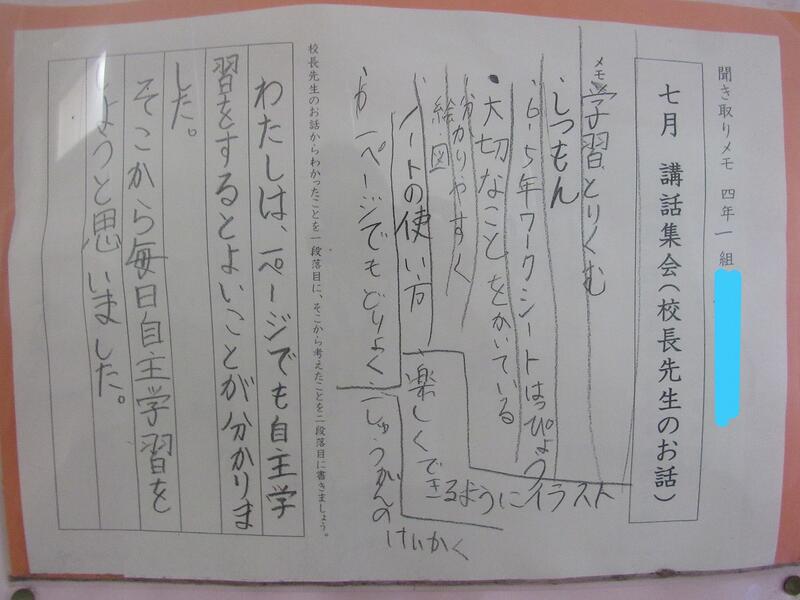 聞き取りメモ 四年一組
七月 講話集会(校長先生のお話)
メモ
学習とりくむ
しつもん
6-5年ワークシートはっぴょう
・大切なことをかいている
分かりやすく
絵・図
ノートの使い方
楽しくできるようにイラスト
一ページでもどりょく
一しゅうかんの
けいかく
校長先生のお話からわかったことを一段落目に、そこから考えたことを二段落目に書きましょう。
わたしは、一ページでも自主学
習をするとよいことが分かりま
した。
そこから毎日自主学習を
しようと思いました。